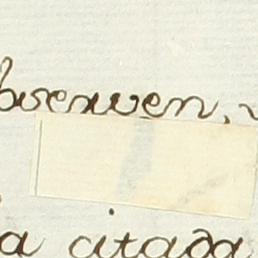 bserven,
a citada